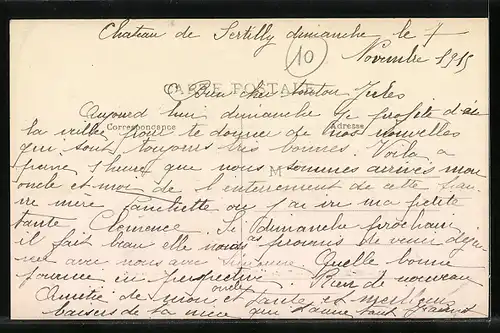 Chateau de Sertilly dimanche le 7
Novembre 1915
10
CARTE POSTALE
Bien cher tonton Jules
Correspondance
Adresse
Aujourd hui dimanche je profite d'être
la ville pour te donner de nos nouvelles
qui sont toujours très bonnes. Voila a
peine 1 heure que nous sommes arrivés mon
oncle et moi de l'enterrement de cette pau-
vre mere Fanchette ou j'ai vu ma petite
M
tante Clemence. Si dimanche prochain
il fait beau elle nous a promis de venir déjeu-
ner avec nous avec Suzanne Quelle bonne
journee en perspective Rien de nouveau
Amitié de mon oncle et tante et meilleurs
baisers de ta niece qui t'aime tant